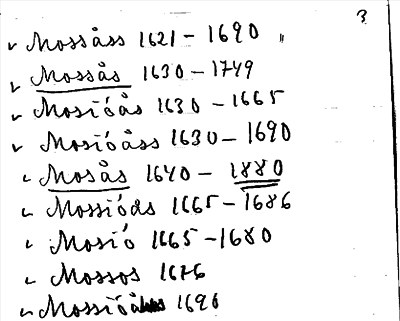 3
✓ Mossåss 1621 - 1690 "
✓ Mossås 1630 - 1749
✓ Mosióås 1630 - 1665
✓ Mosióåss 1630 - 1690
✓ Mosås 1640 - 1880
✓ Mossióds 1665 - 1686
✓ Mosió 1665 - 1680
✓ Mossos 1676
✓ 1696